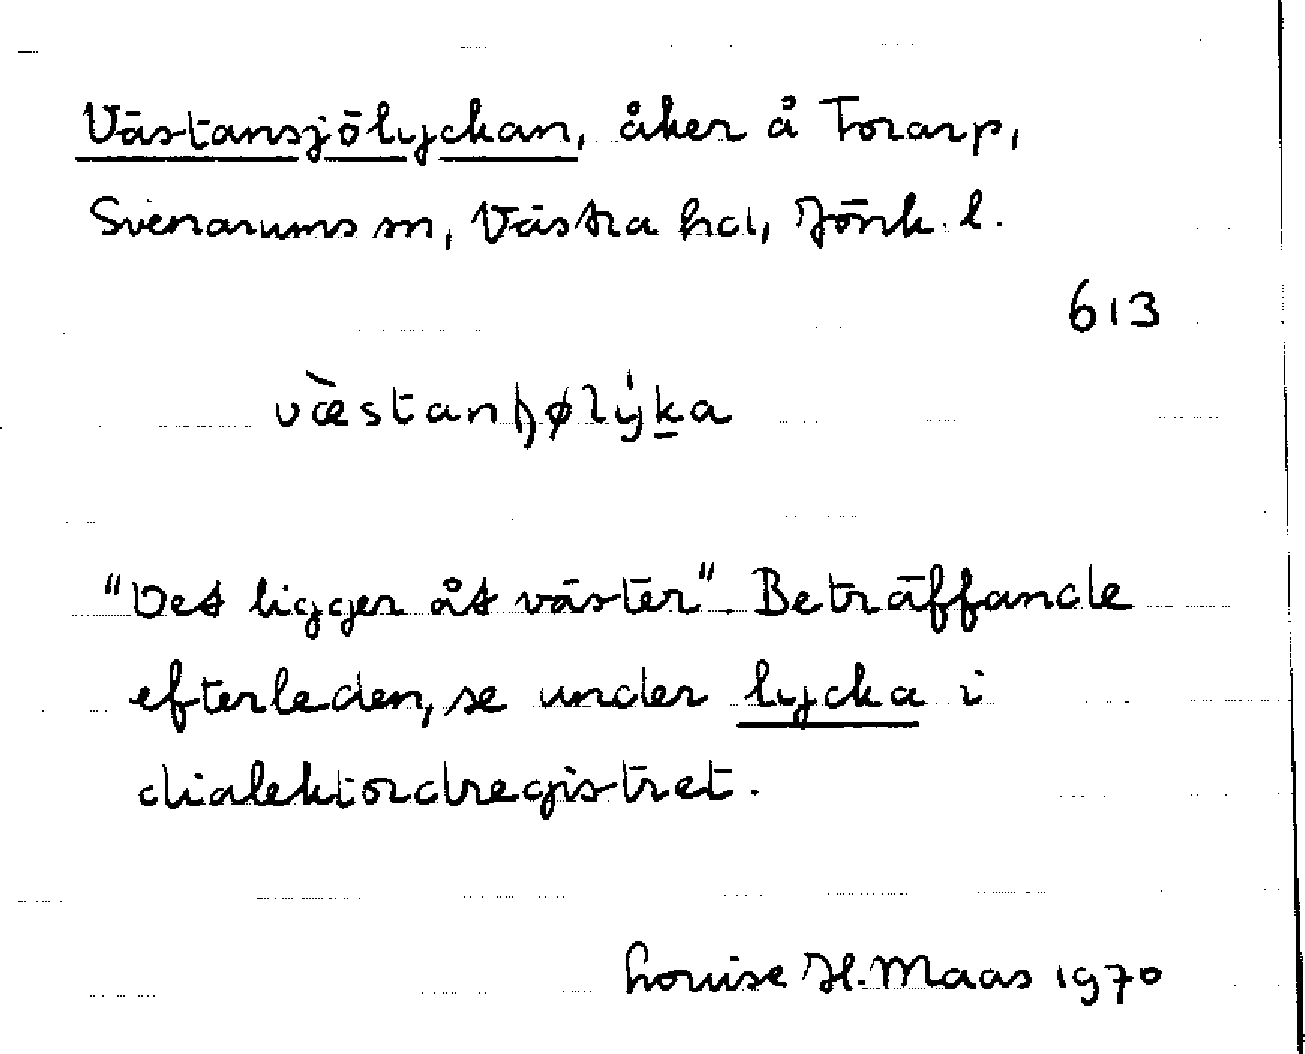 Västansjölyckan, åker å Torarp,
Svenarums sn, Västra hd, Jönk. l.
613
væ̀stanɧøly̍ka
"Det ligger åt väster". Beträffande
efterleden, se under lycka i
dialektordregistret.
Louise H. Maas 1970